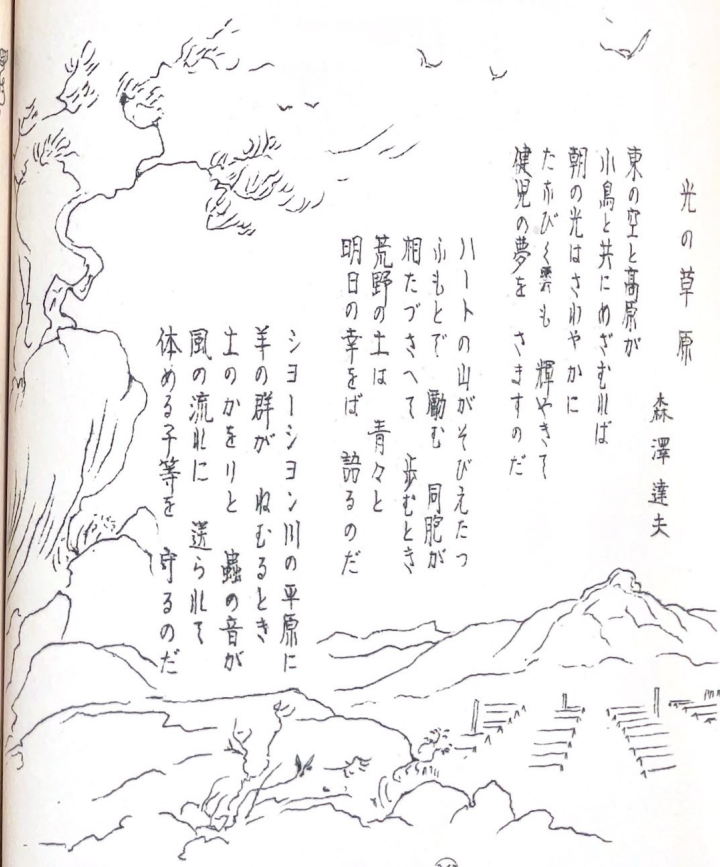 光の草原
森澤達夫
東の空と高原が
小鳥と共にめざむれば
朝の光はさわやかに
たなびく雲も 輝やきて
健児の夢を さますのだ
ハートの山がそびえたつ
ふもとで 勵む 同胞が
相たづさへて 歩むとき
荒野の土は 青々と
明日の幸をば 語るのだ
シヨーシヨン川の平原に
羊の群が ねむるとき
土のかをりと 蟲の音が
風の流れに 送られて
体める子等を 守るのだ